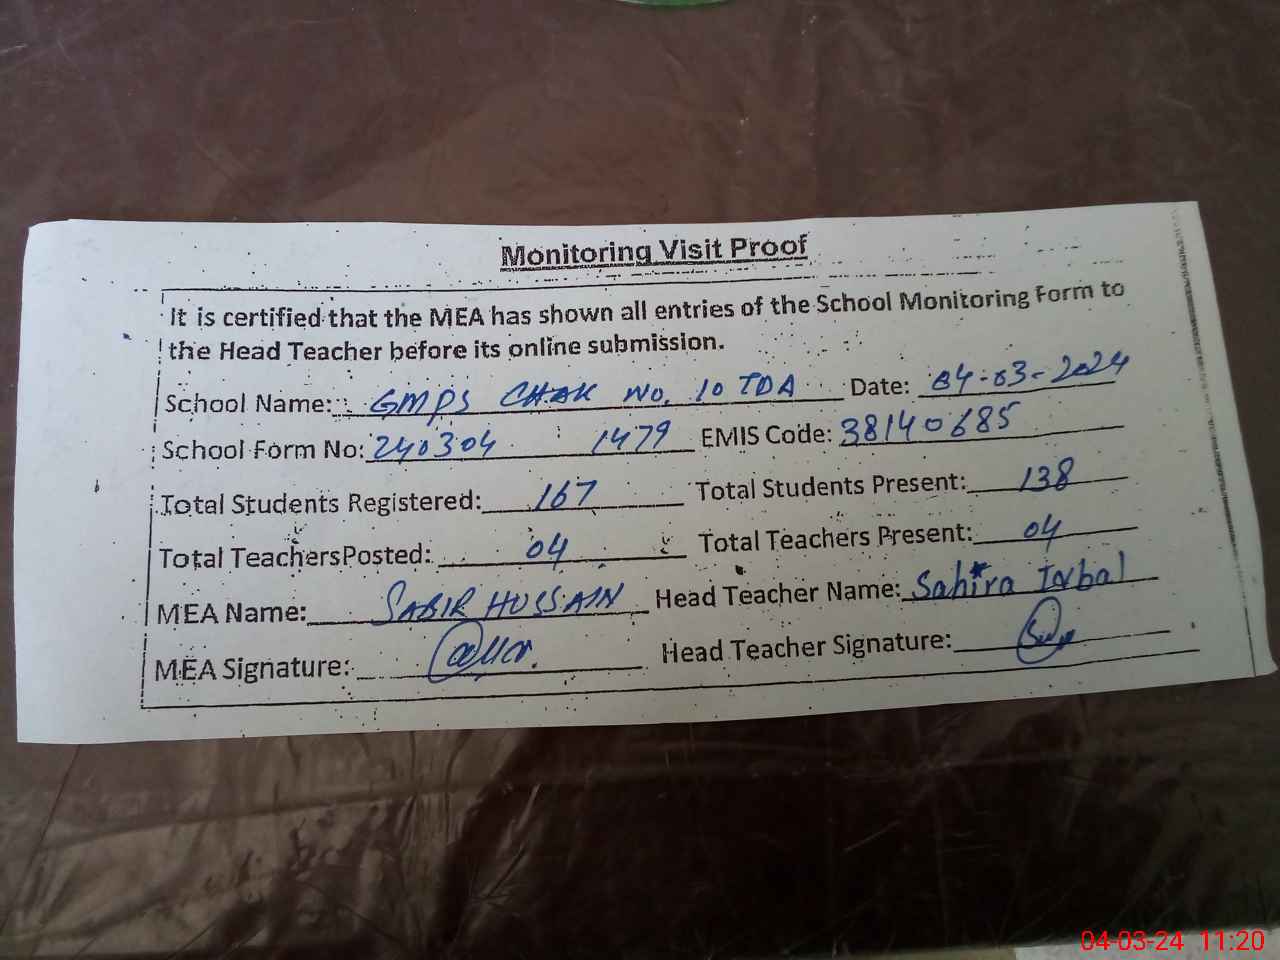 Monitoring Visit Proof
It is certified that the MEA has shown all entries of the School Monitoring Form to
the Head Teacher before its online submission.
School Name: GMPS CHAK No. 10 TDA Date: 04-03-2024
School Form No: 240304 1479 EMIS Code: 38140685
Total Students Registered: 167 Total Students Present: 138
Total TeachersPosted: 04 Total Teachers Present: 04
MEA Name: SABIR HUSSAIN Head Teacher Name: Sahira Iqbal
MEA Signature: Head Teacher Signature:
04-03-24 11:20